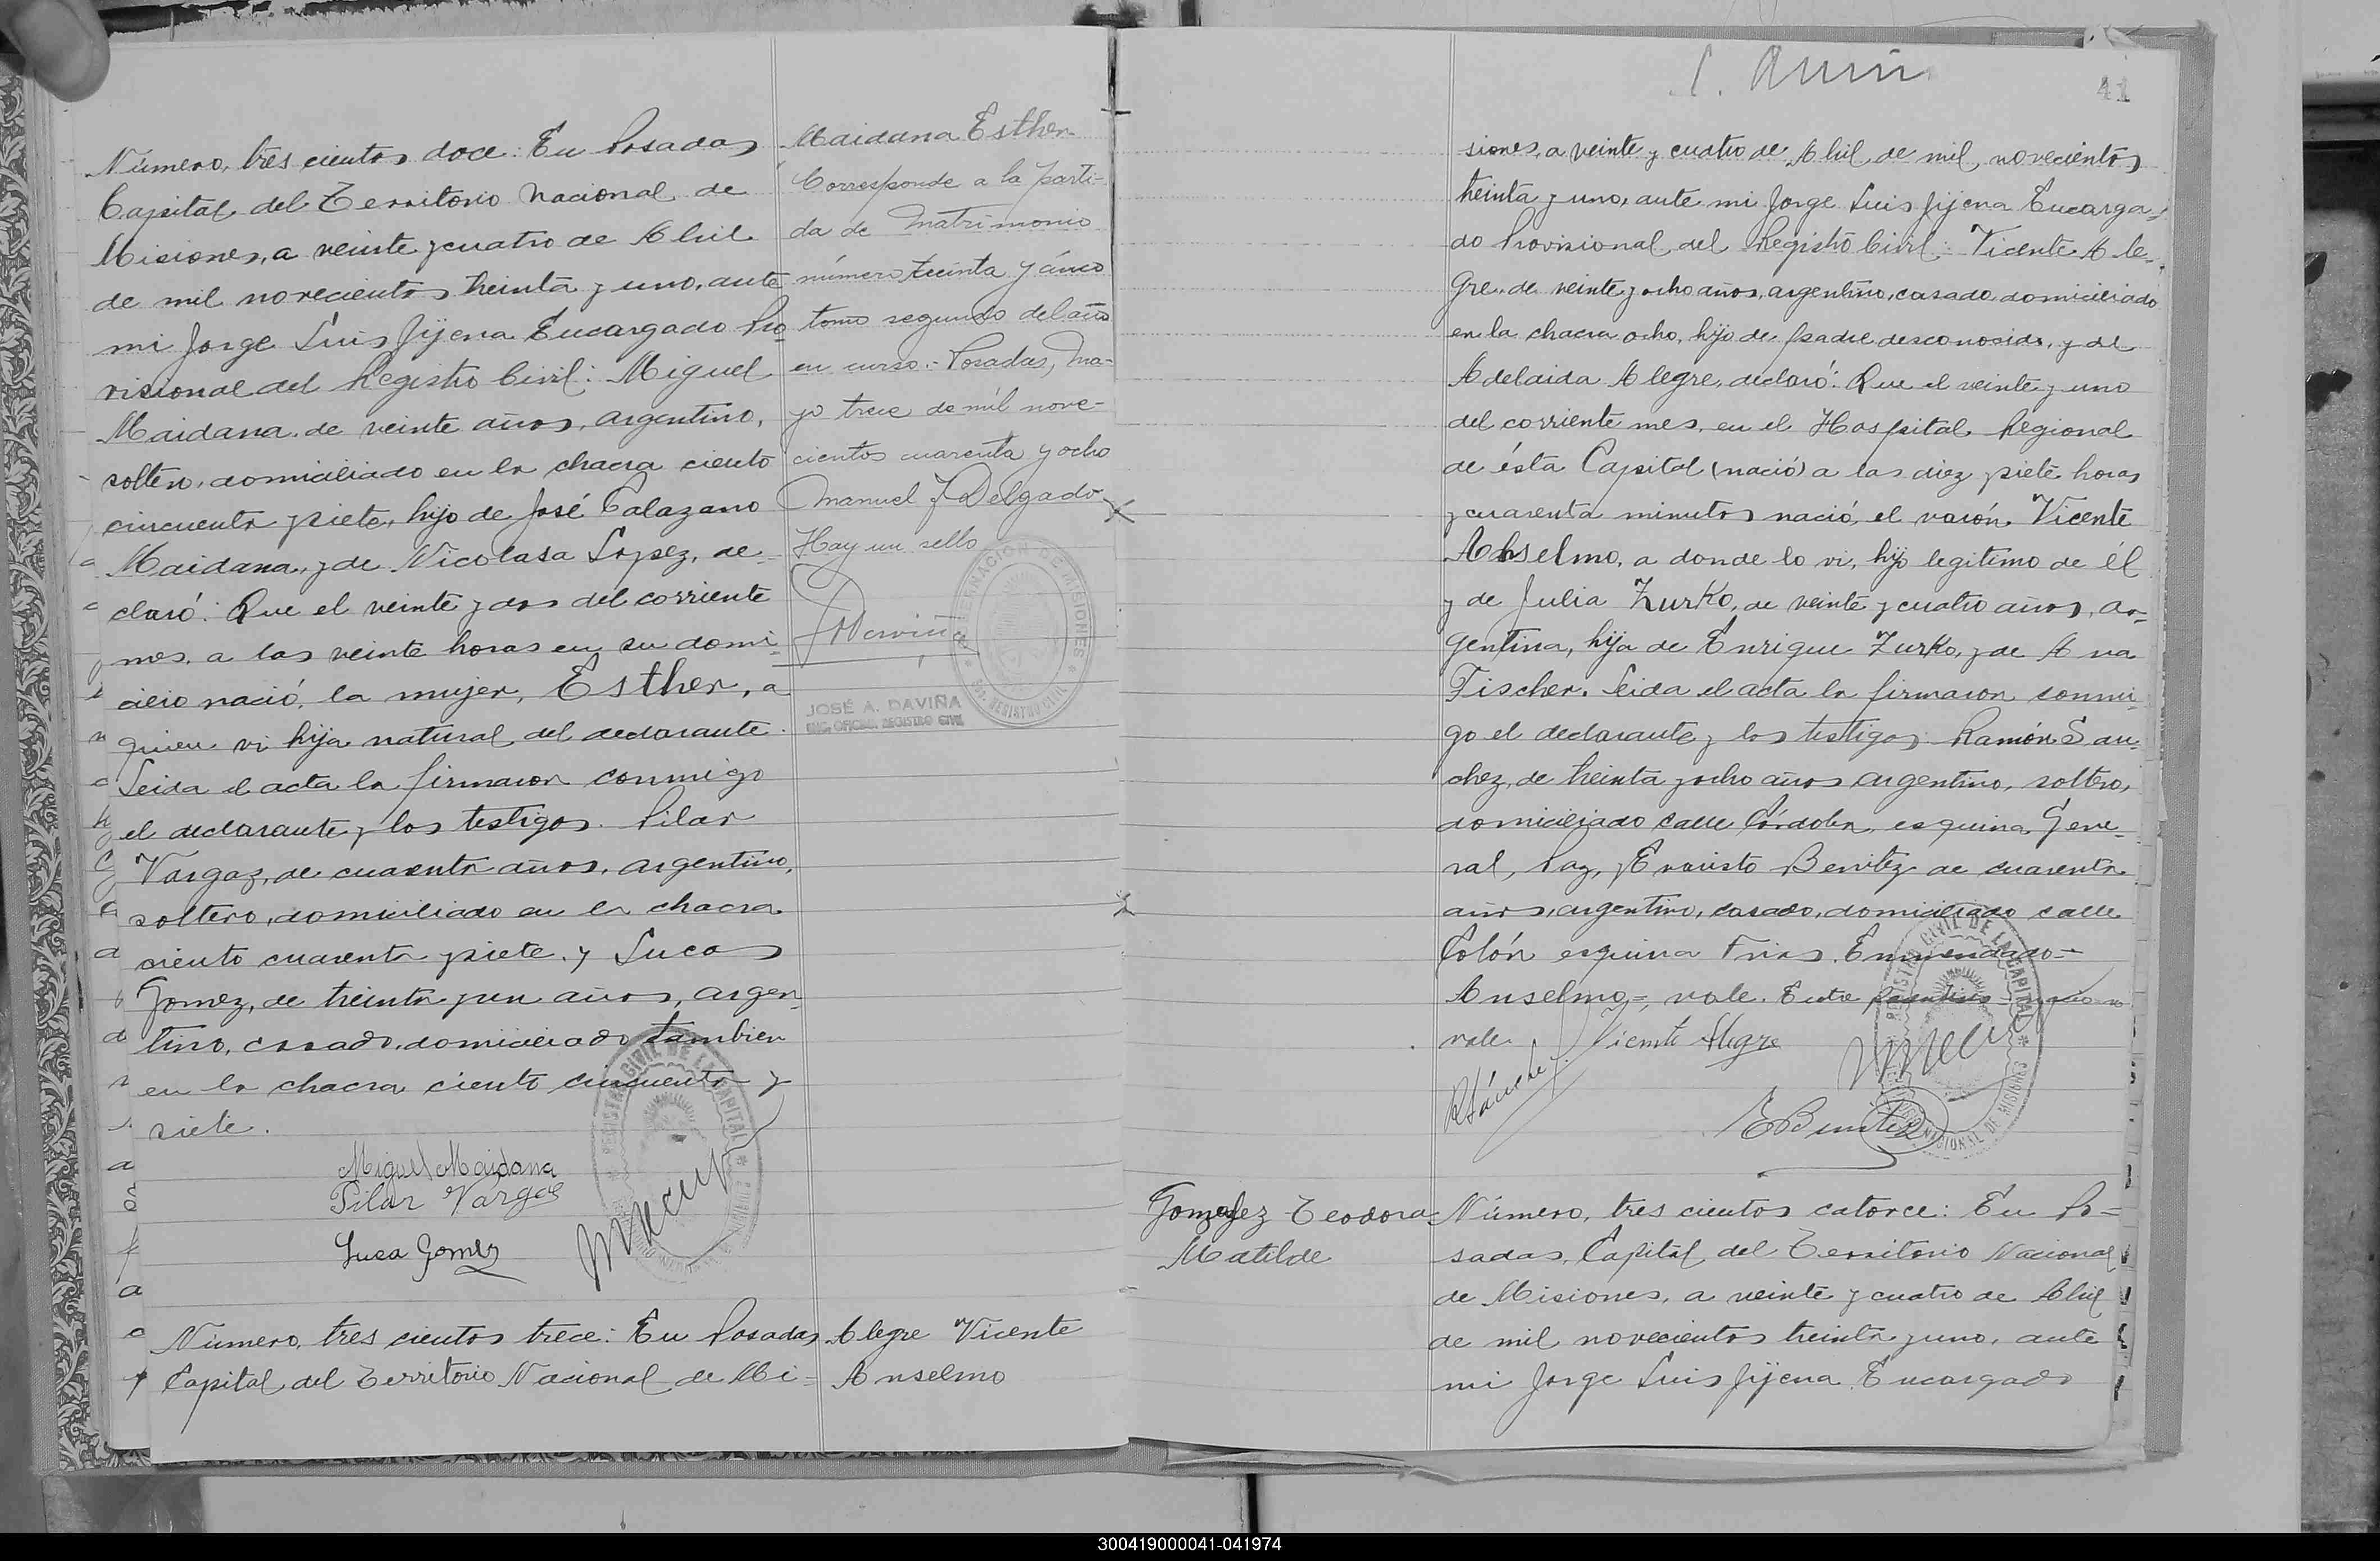 Número, tres cientos doce: En Posadas
Capital del Territorio Nacional de
Misiones, a veinte y cuatro de Abril
de mil novecientos treinta y uno, ante
mi Jorge Luis Jijena Encargado Pro
visional del Registro Civil: Miguel
Maidana, de veinte años, argentino,
soltero, domiciliado en la chacra ciento
cincuenta y siete, hijo de José Calazano
Maidana, y de Nicolasa Lopez, de-
claró: Que el veinte y dos del corriente
mes, a las veinte horas en su domi-
cilio nació, la mujer, Esther, a
quien vi hija natural del declarante.
Leida el acta la firmaron conmigo
el declarante y los testigos. Pilar
Vargaz, de cuarenta años, argentino,
soltero, domiciliado en la chacra
ciento cuarenta y siete. y Lucas
Gomez, de treinta y un años, argen
tino, casado, domiciliado tambien
en la chacra ciento cincuenta y
siete.
Miguel Maidana
Pilar Vargas
Luca Gomez
Número, tres cientos trece: En Posadas,
Capital del Territorio Nacional de Mi=
Maidana Esther
Corresponde a la parti-
da de Matrimonio
número treinta y cinco
tomo segundo del año
en curso.- Posadas, Ma-
yo trece de mil nove-
cientos cuarenta y ocho
Manuel J Delgado
Hay un sello
GOBERNACION DE MISIONES
REGISTRO CIVIL
JOSÉ A. DAVIÑA
ENC. OFICINA REGISTRO CIVIL
REGISTRO CIVIL DE LA CAPITAL
Alegre Vicente
Anselmo
41
siones, a veinte y cuatro de Abril de mil, novecientos
treinta y uno, ante mi Jorge Luis Jijena Encarga=
do Provisional del Registro Civil: Vicente Ale-
gre, de veinte y ocho años, argentino, casado, domiciliado
en la chacra ocho, hijo de padre desconosido, y de
Adelaida Alegre, declaró: Que el veinte y uno
del corriente mes, en el Hospital Regional
de ésta Capital (nació) a las diez y siete horas
y cuarenta minutos nació, el varón, Vicente
Anselmo, a donde lo vi, hijo legitimo de él
y de Julia Zurko, de veinte y cuatro años, ar-
gentina, hija de Enrique Zurko, y de Ana
Fischer. Leida el acta la firmaron conmi-
go el declarante y los testigos: Ramón San-
chez, de treinta y ocho años argentino, soltero,
domiciliado calle Córdoba, esquina Gene-
ral, Paz, y Evaristo Benitez de cuarenta
años, argentino, casado, domiciliado calle
Colón esquina Frias. Enmendado=
Anselmo=, vale. Entre
vale.
Vicente Alegre
RSánchez
EBenitez
REGISTRO CIVIL DE LA CAPITAL
NACIONAL DE MISIONES
Teodora
Matilde
Número, tres cientos catorce: En Po=
sadas, Capital del Territorio Nacional
de Misiones, a veinte y cuatro de Abril
de mil novecientos treinta y uno, ante
mi Jorge Luis Jijena Encargado
300419000041-041974